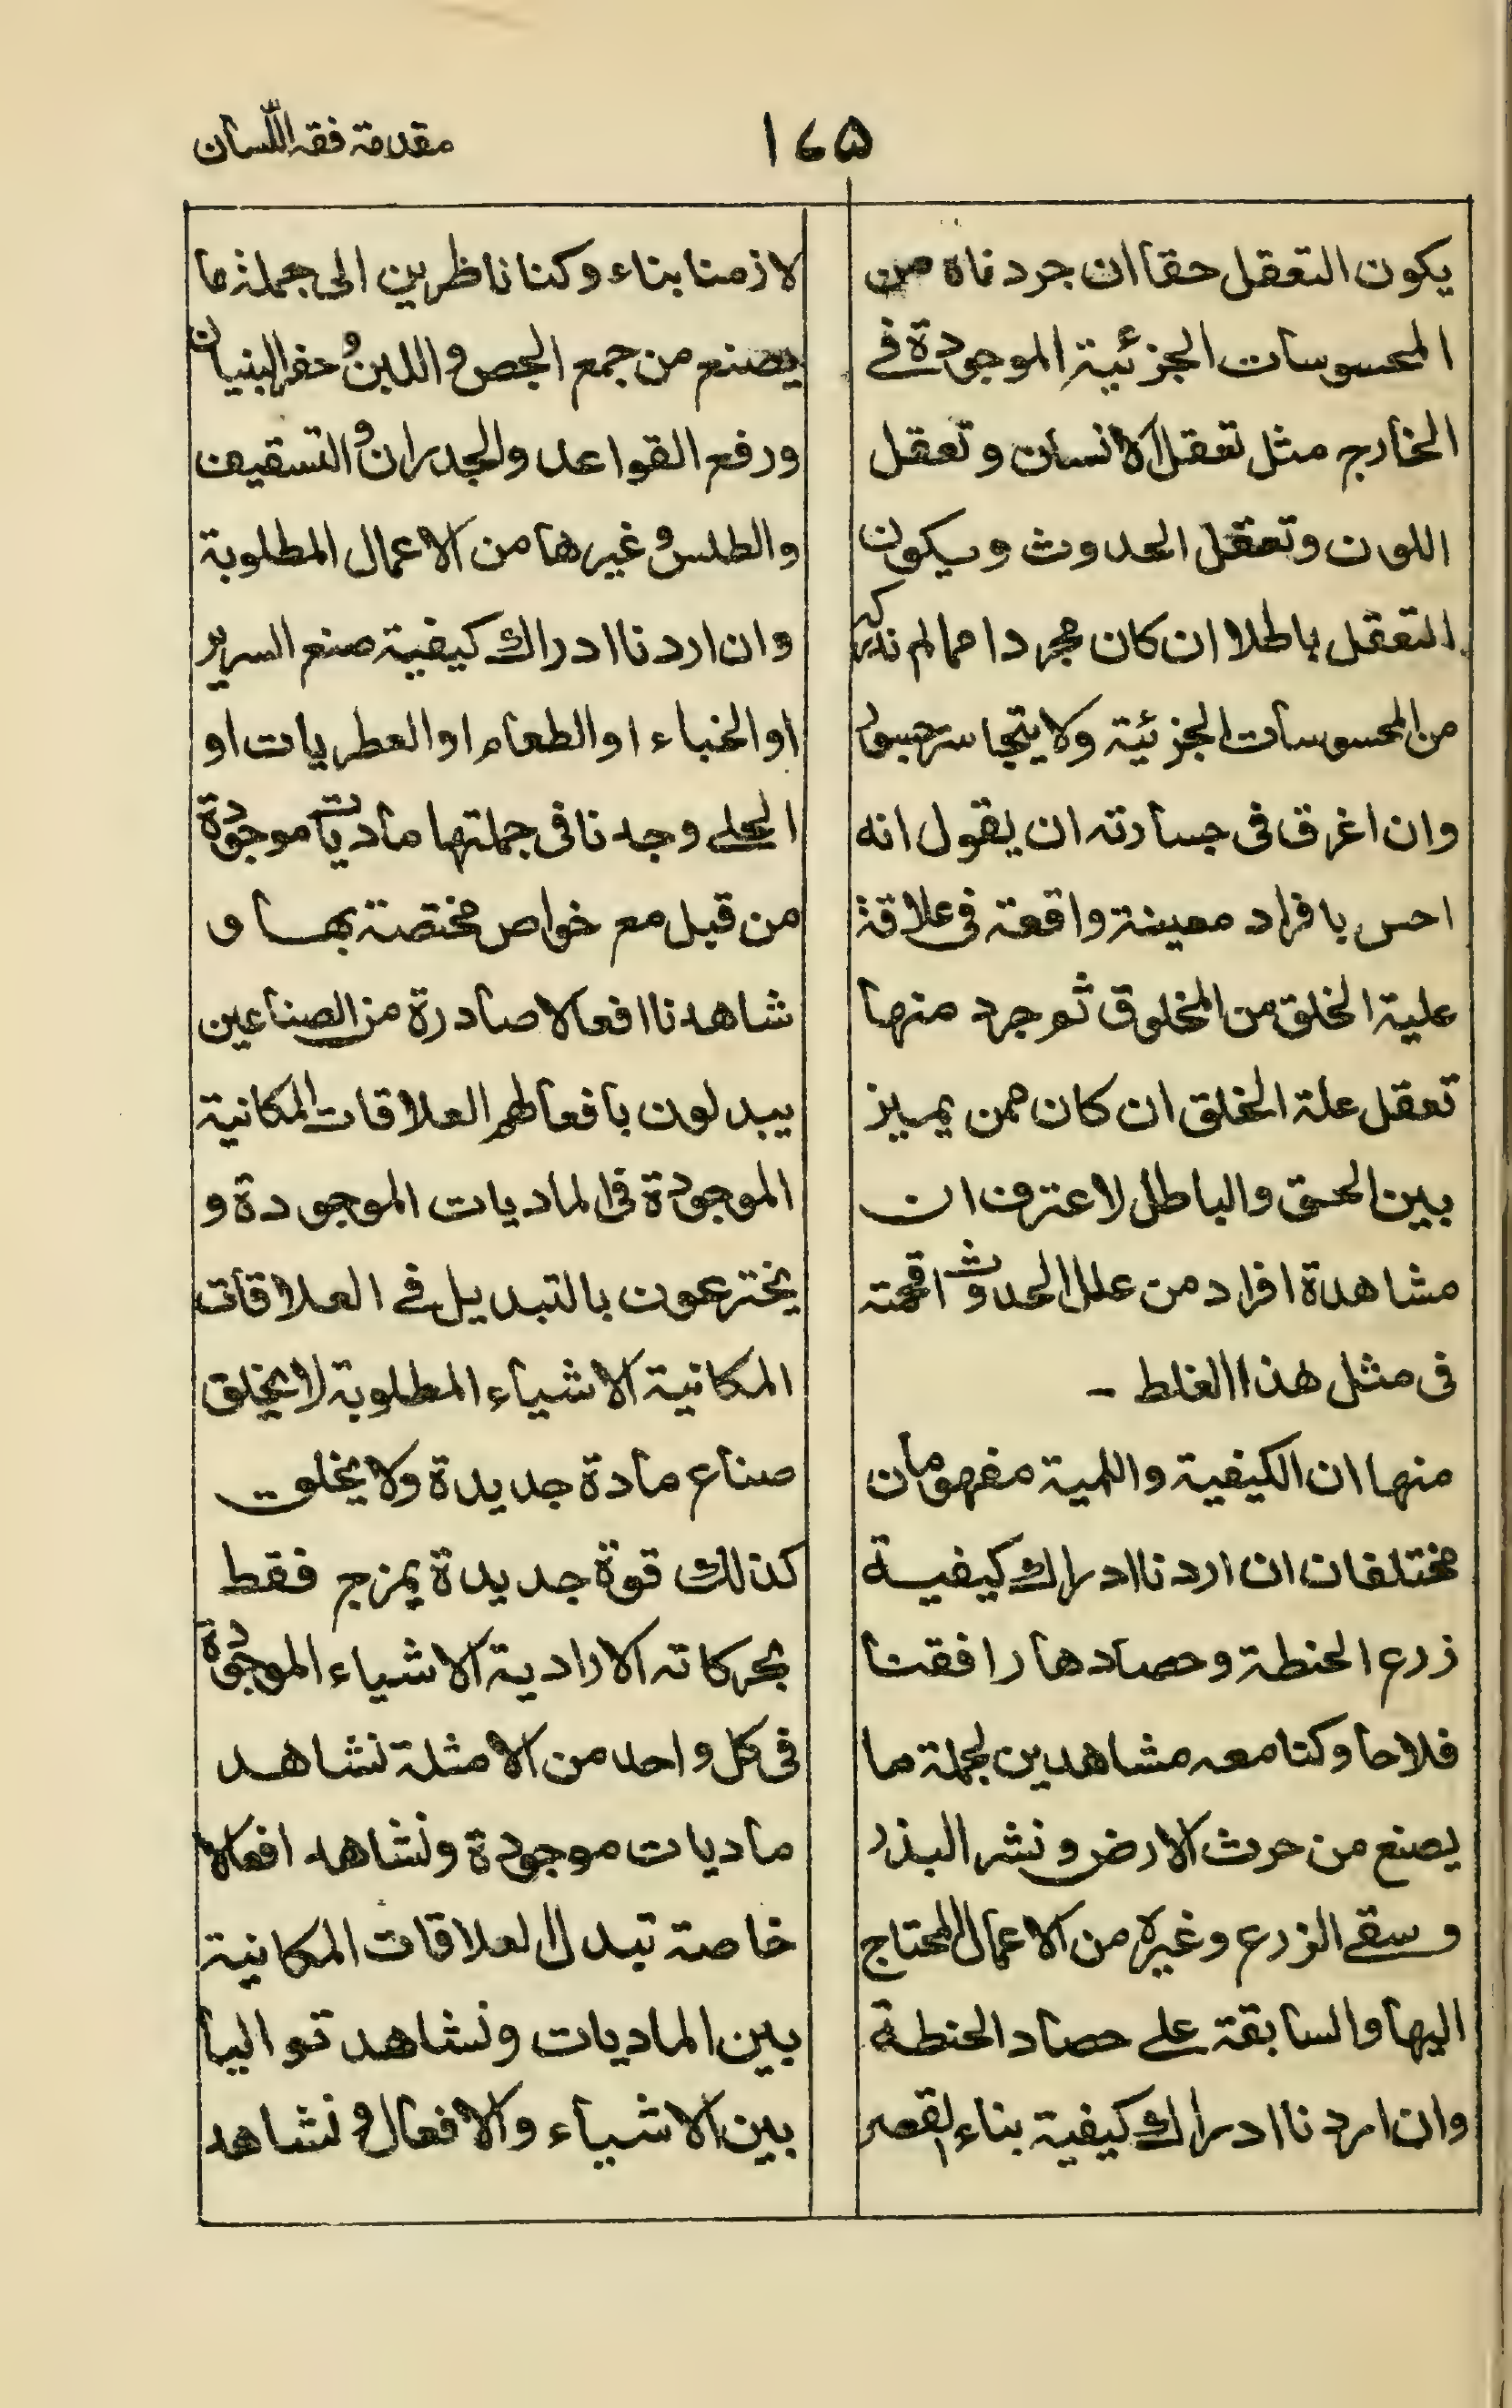 مقدمة فقه اللسان
١٦٥
يكون التعقل حقا ان جردناه من
المحسوسات الجزئية الموجودة فے
الخارج مثل تعقل الانسان و تعقل
اللون و تعقل الحدوث و يكون
التعقل باطلا ان كان مجردا مما لم ندرك
من المحسوسات الجزئية ولا يتجاسر جسور
وان اغرق فى جسارته ان يقول انه
احس بافراد معينة واقعة فى علاقة
علية الخلق من المخلوق ثم جرد منها
تعقل علة الخلق ان كان ممن يميز
بين الحق والباطل لاعترف ان
مشاهدة افراد من علل الحدوث اقحمته
فى مثل هذا الغلط -
منها ان الكيفية واللمية مفهومان
مختلفان ان اردنا ادراك كيفية
زرع الحنطة وحصادها رافقنا
فلاحا وكنا معه مشاهدين لجملة ما
يصنع من حرث الارض و نشر البذر
و سقے الزرع و غيره من الاعمال المحتاج
اليها والسابقة علے حصاد الحنطة
وان اردنا ادراك كيفية بناء القصر
لازمنا بناء و كنا ناظرين الى جملة ما
يصنع من جمع الجص و اللبن و حفر البنيان
ورفع القواعد والجدران و التسقيف
والطلس و غيرها من الاعمال المطلوبة
وان اردنا ادراك كيفية صنع السرير
او الخباء او الطعام او العطريات او
الحلے وجدنا فى جملتها ماديات موجودة
من قبل مع خواص مختصة بها و
شاهدنا افعالا صادرة من الصناعين
يبدلون بافعالهم العلاقات المكانية
الموجودة فى الماديات الموجودة و
يخترعون بالتبديل فے العلاقات
المكانية الاشياء المطلوبة لا يخلق
صناع مادة جديدة ولا يخلق
كذلك قوة جديدة يمزج فقط
بحركاته الارادية الاشياء الموجودة
فى كل واحد من الامثلة نشاهد
ماديات موجودة ونشاهد افعالا
خاصة تبدل العلاقات المكانية
بين الماديات ونشاهد تواليا
بين الاشياء والافعال و نشاهد